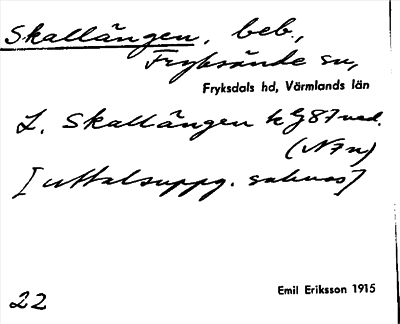 Skallängen, beb.,
Fryksände sn,
Fryksdals hd, Värmlands län
L. Skallängen kG87ned.
(N7n)
[uttalsuppg. saknas]
22
Emil Eriksson 1915